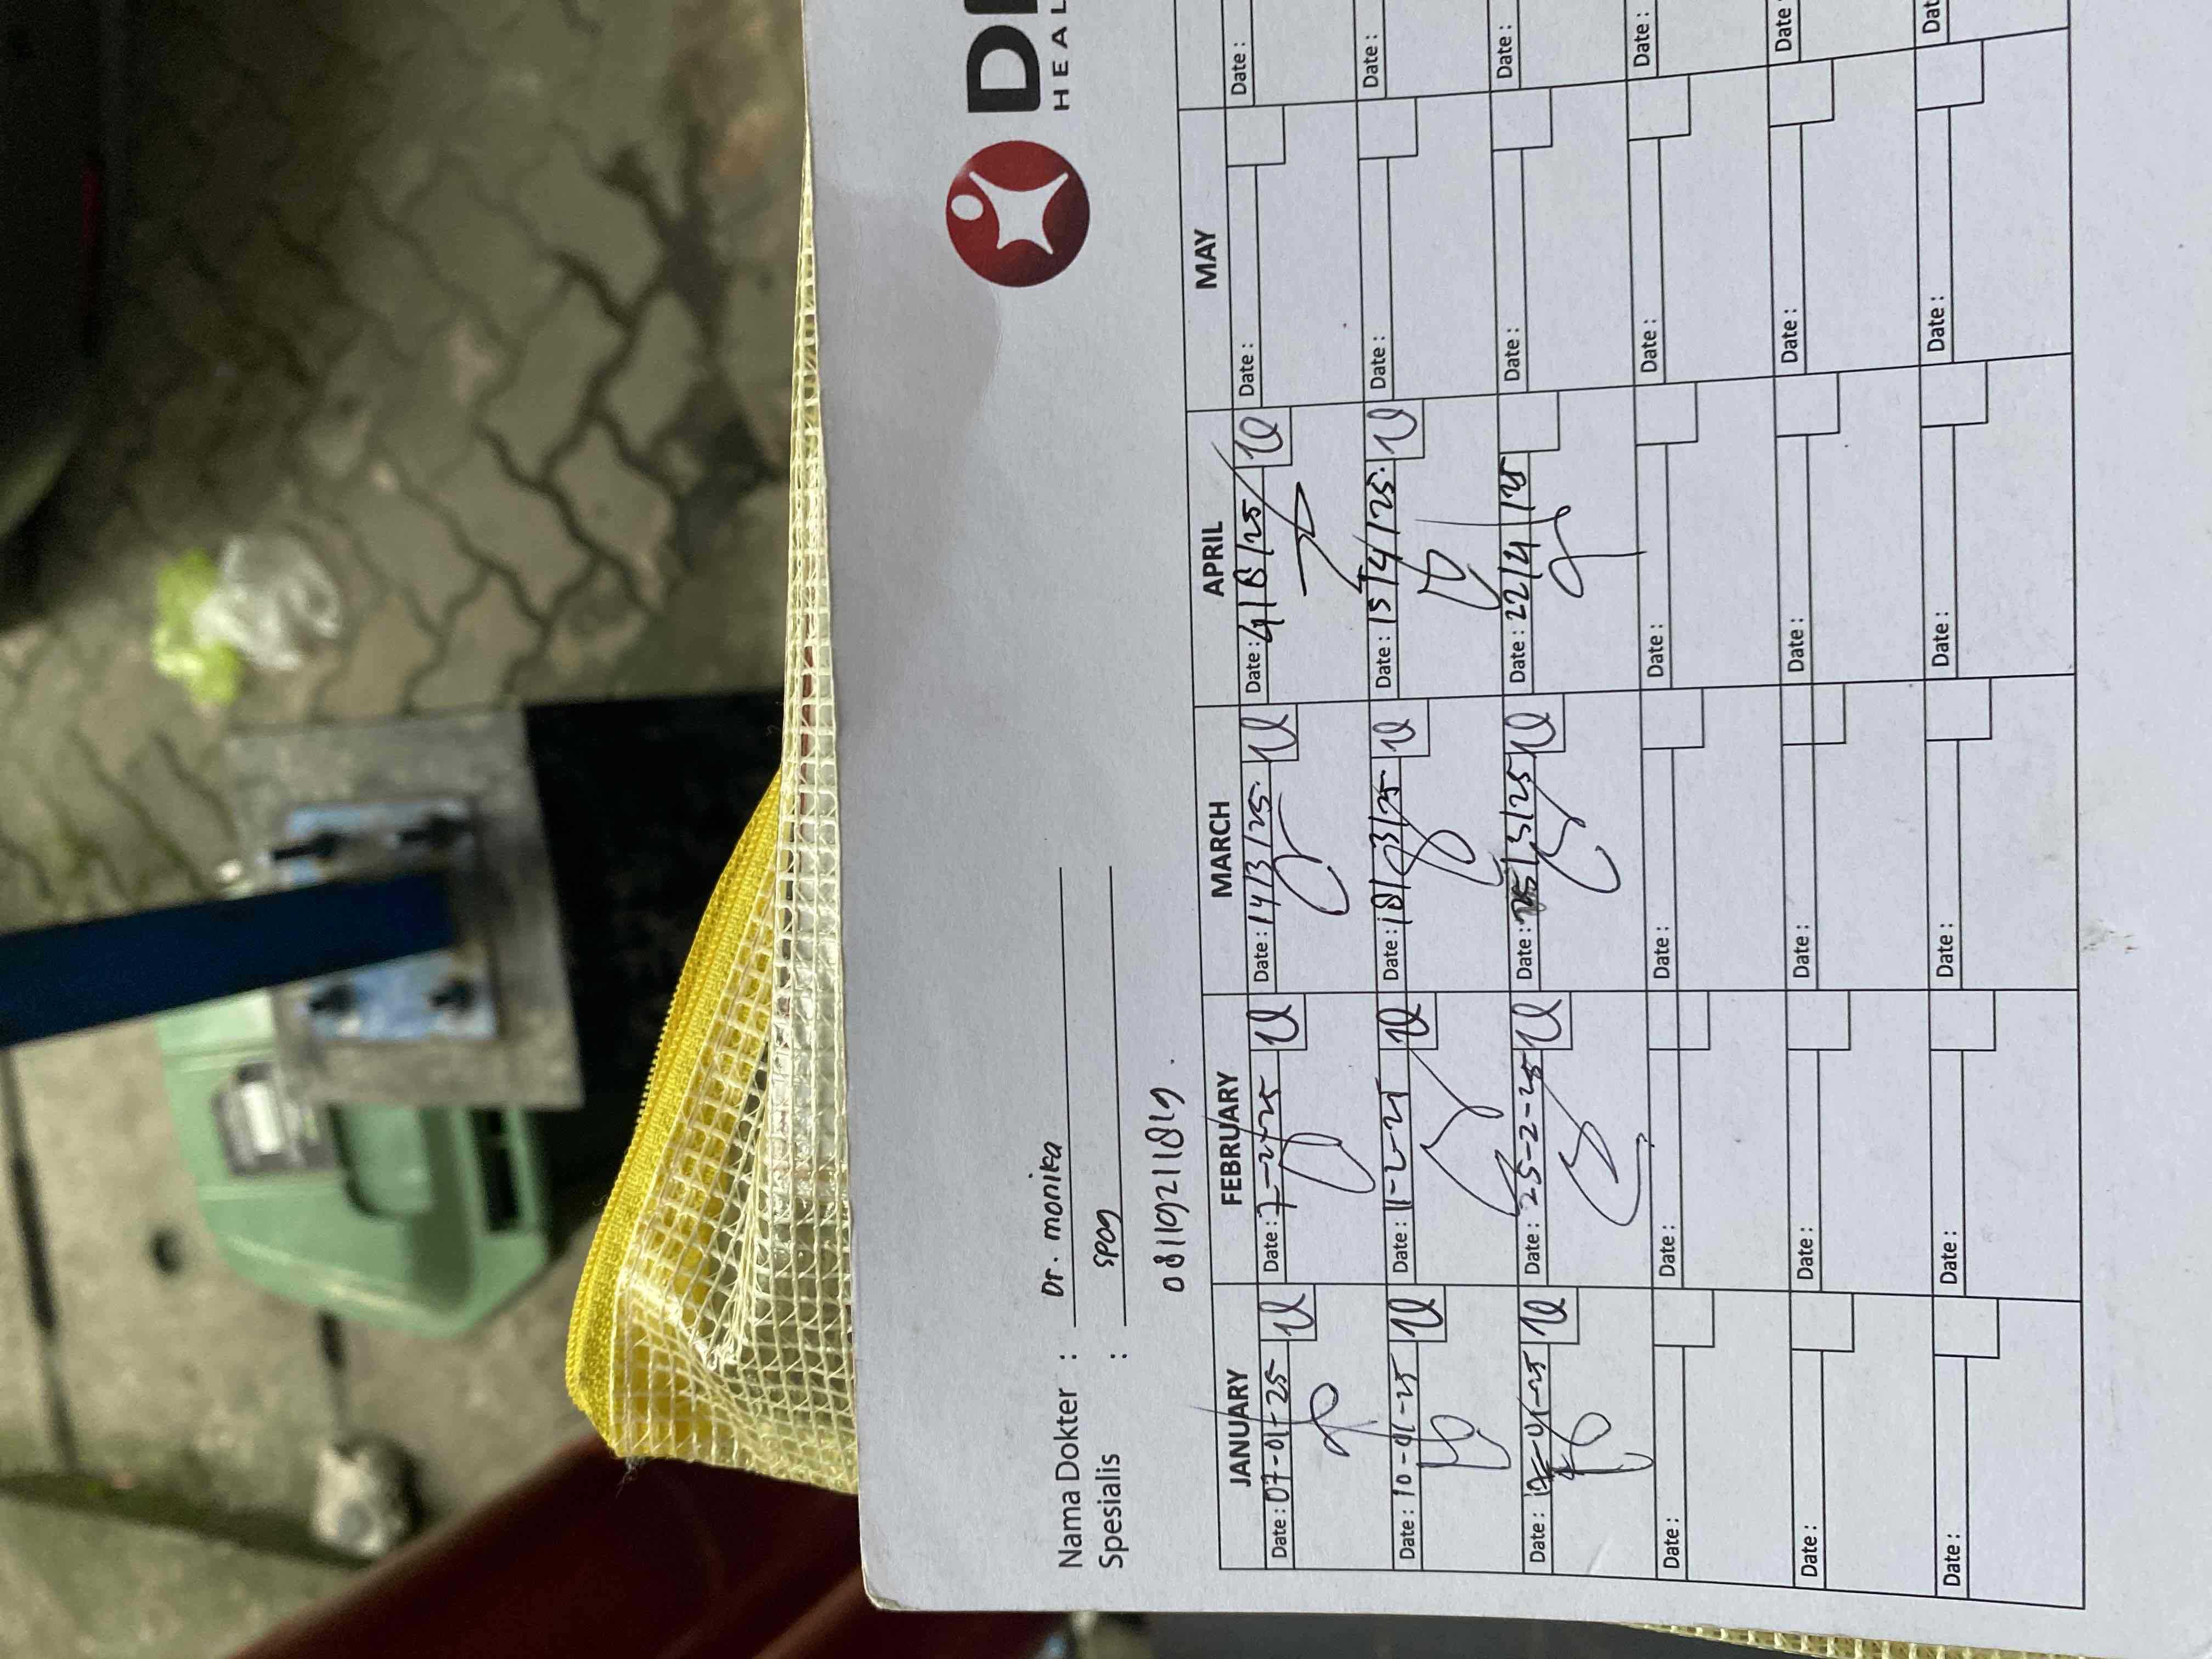 HEAL
Nama Dokter : Dr. monika
Spesialis : spog
08119211819
JANUARY FEBRUARY MARCH APRIL MAY
Date : 07-01-25 Date : 7-2-25 Date : 14/3/25 Date : Date : Date :
Date : 10-01-25 Date : 11-2-25 Date : 18/03/25 Date : 15/4/25 Date : Date :
Date : Date : 25-2-25 Date : 25/3/25 Date : 22/4/25 Date : Date :
Date : Date : Date : Date : Date : Date :
Date : Date : Date : Date : Date : Date
Date : Date : Date : Date : Date : Dat